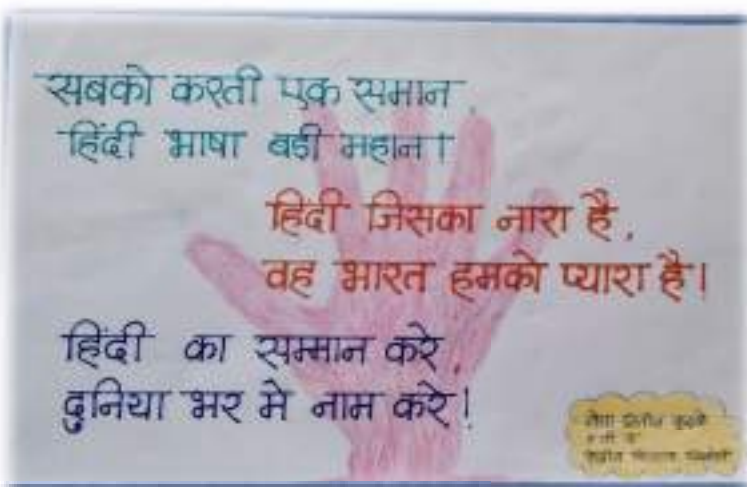 सबको करती एक समान,
हिंदी भाषा बडी महान।
हिंदी जिसका नारा है,
वह भारत हमको प्यारा है।
हिंदी का सम्मान करे,
दुनिया भर मे नाम करे!